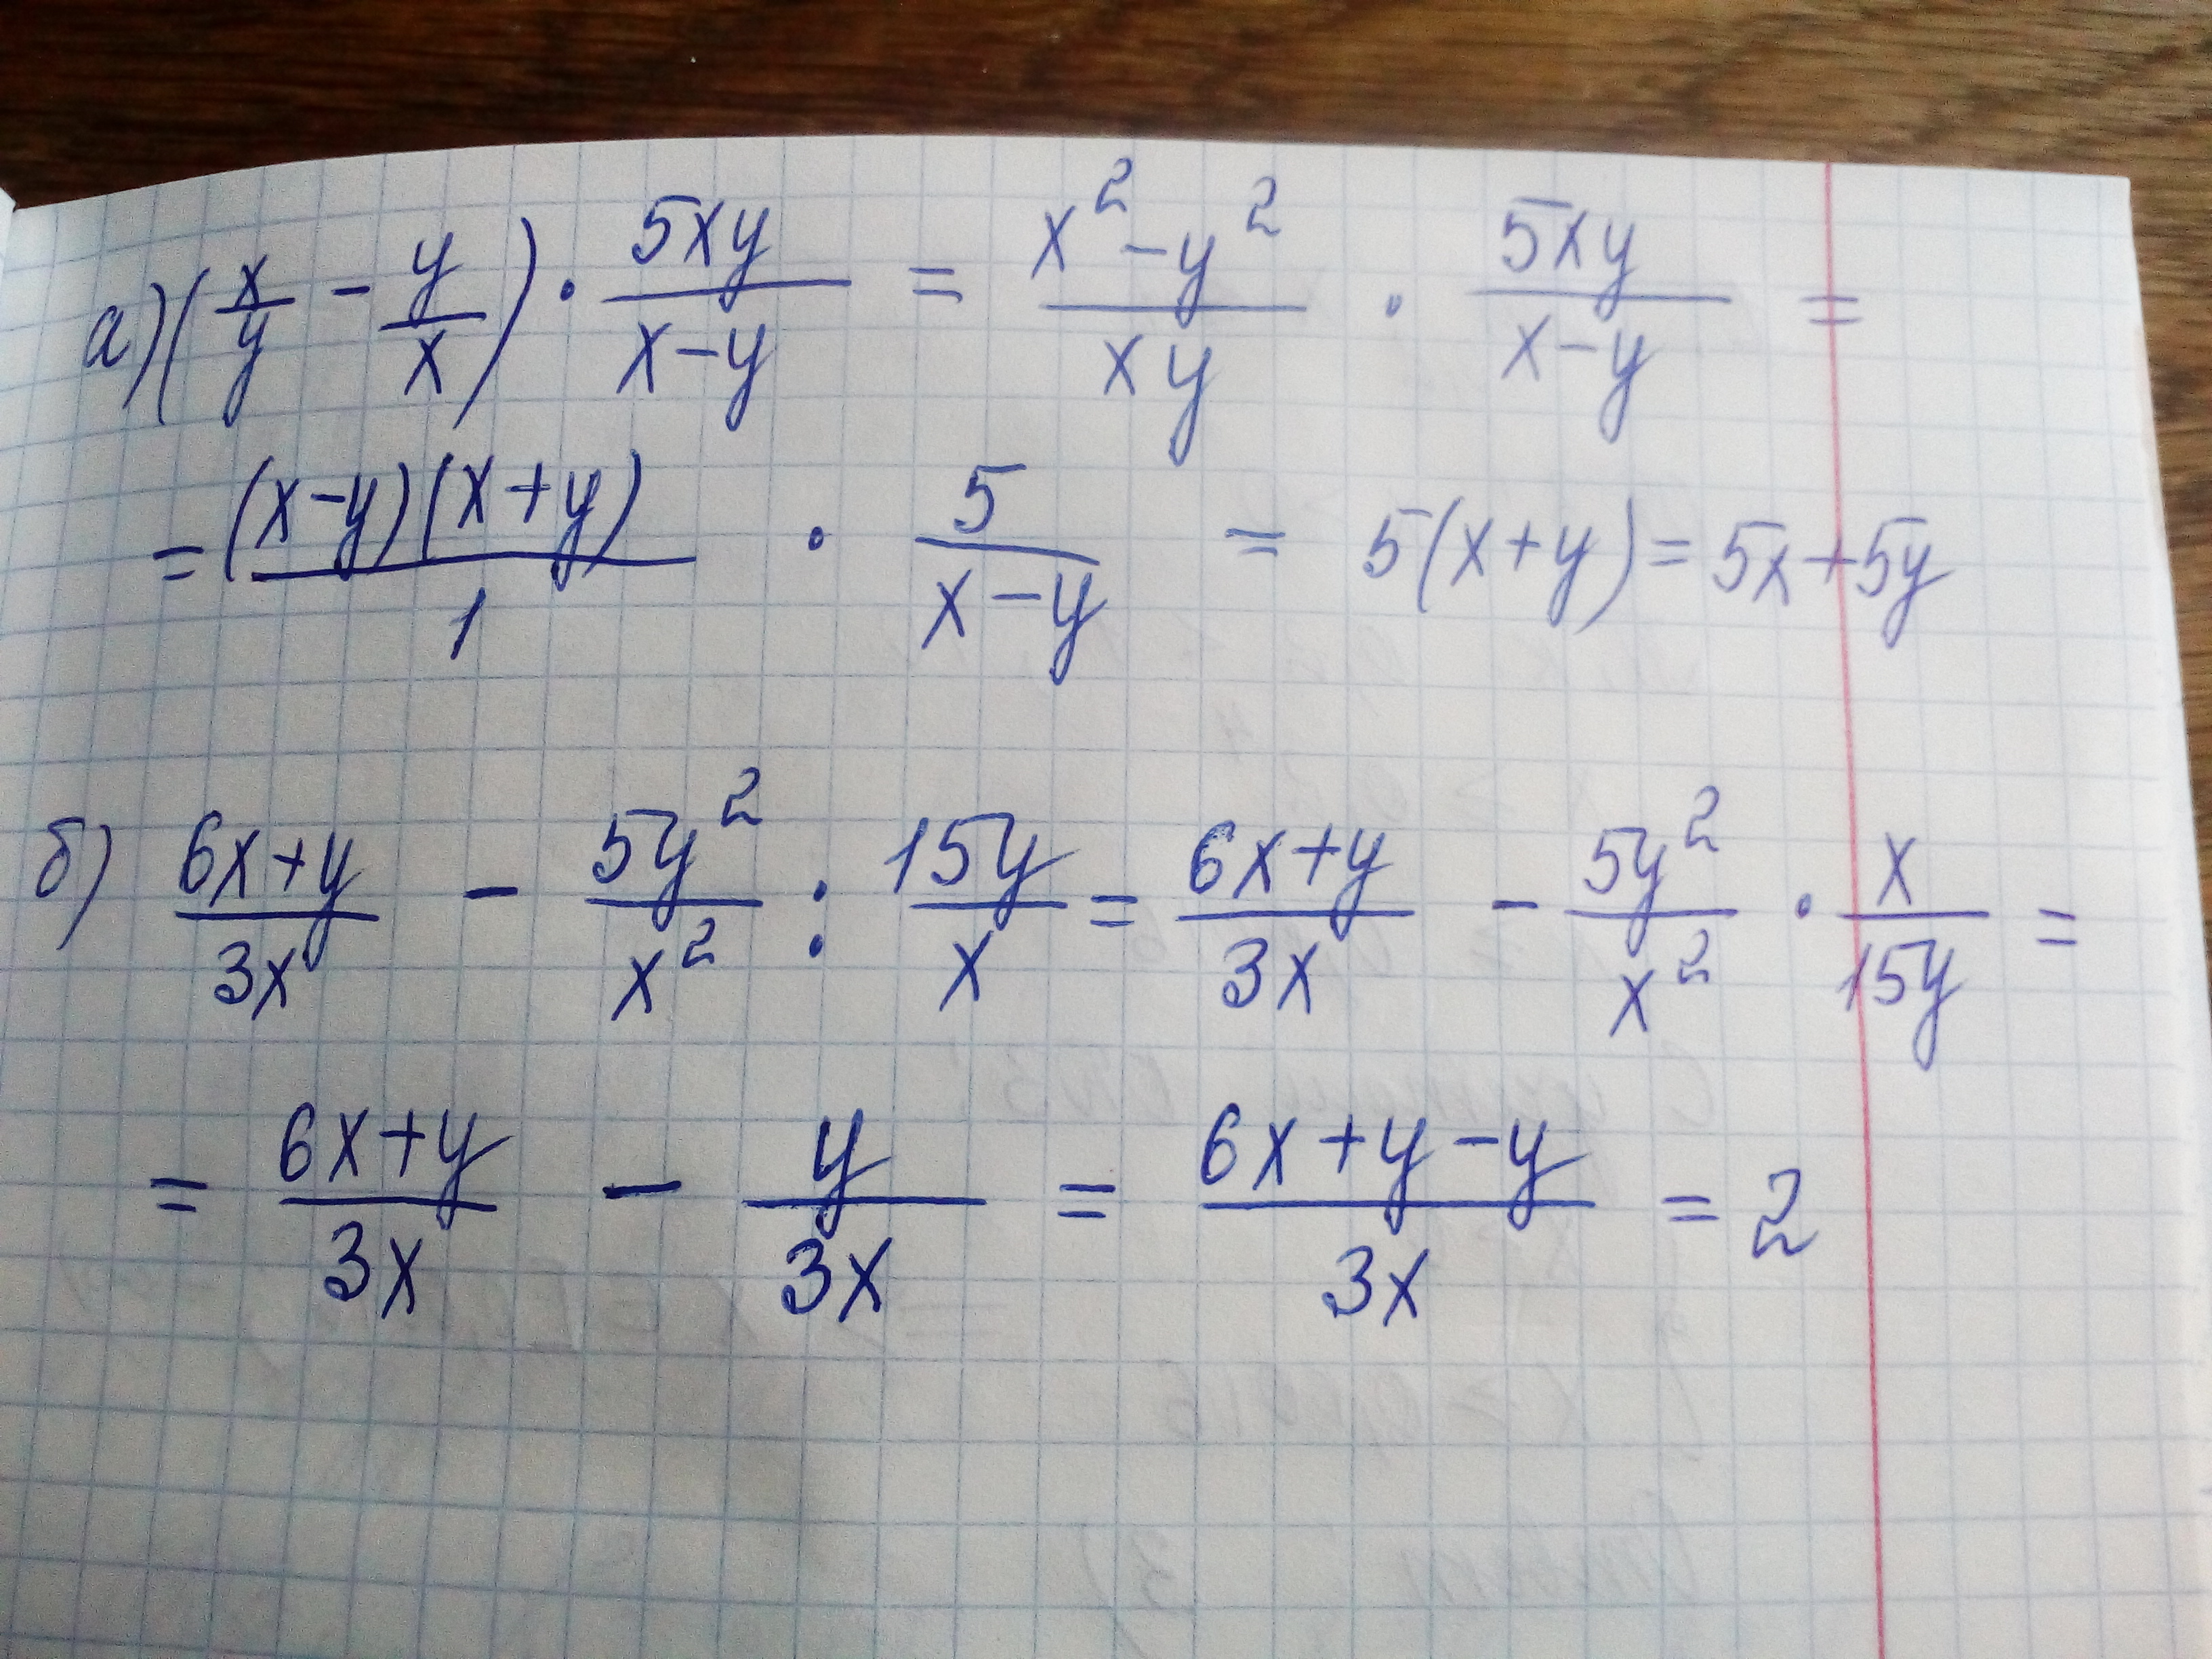 а) (x/y - y/x) · 5xy/x-y = x²-y²/xy · 5xy/x-y =
= (x-y)(x+y)/1 · 5/x-y = 5(x+y) = 5x+5y
б) 6x+y/3x - 5y²/x² : 15y/x = 6x+y/3x - 5y²/x² · x/15y =
= 6x+y/3x - y/3x = 6x+y-y/3x = 2